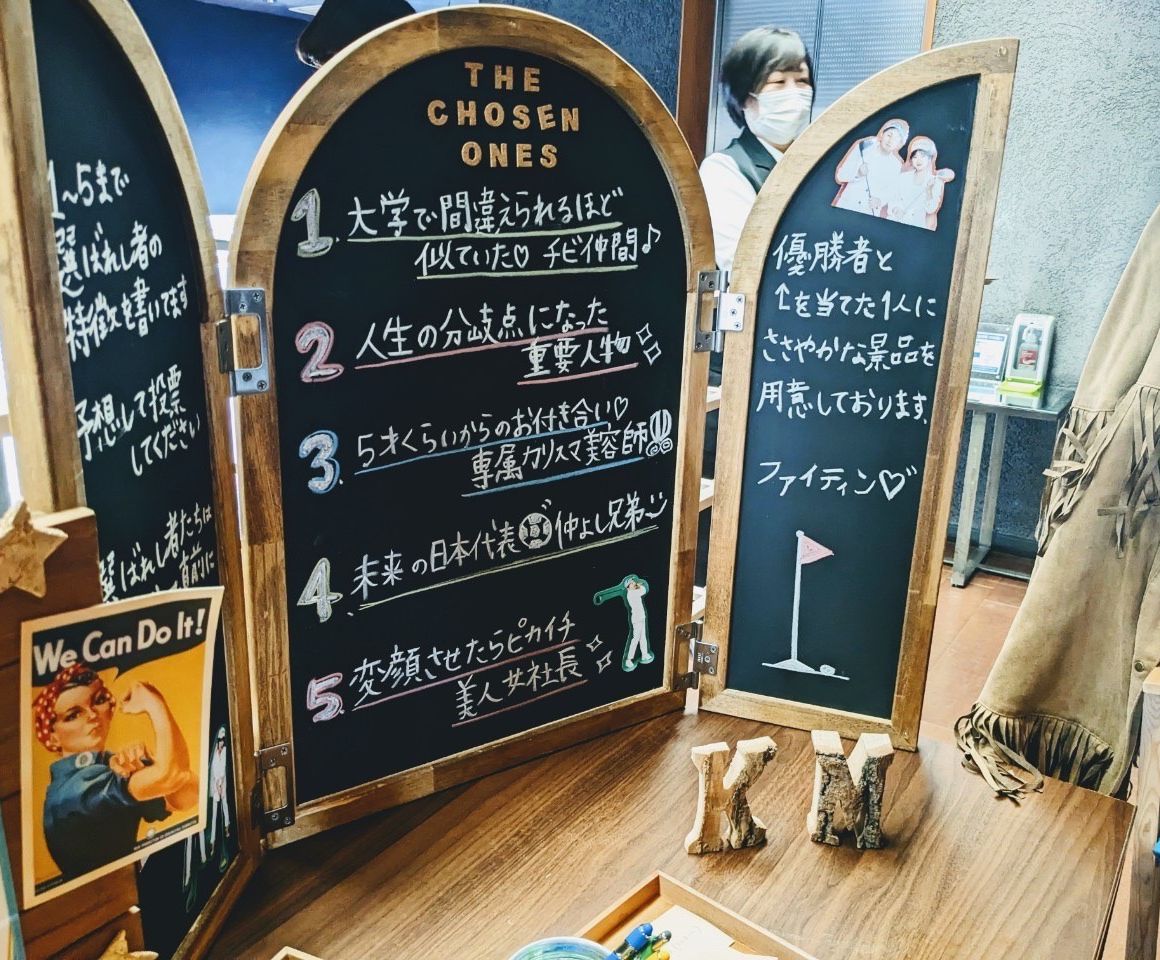 1~5まで
選ばれし者の
特徴を書いてます
予想して投票
してください
選ばれし者たちは
直前に
THE
CHOSEN
ONES
1. 大学で間違えられるほど
似ていた♡ チビ仲間♪
2. 人生の分岐点になった
重要人物
3. 5才くらいからのお付き合い♡
専属カリスマ美容師
4. 未来の日本代表 仲よし兄弟
5. 変顔させたらピカイチ
美人女社長
優勝者と
↑を当てた1人に
ささやかな景品を
用意しております。
ファイティン♡
We Can Do It!
K M